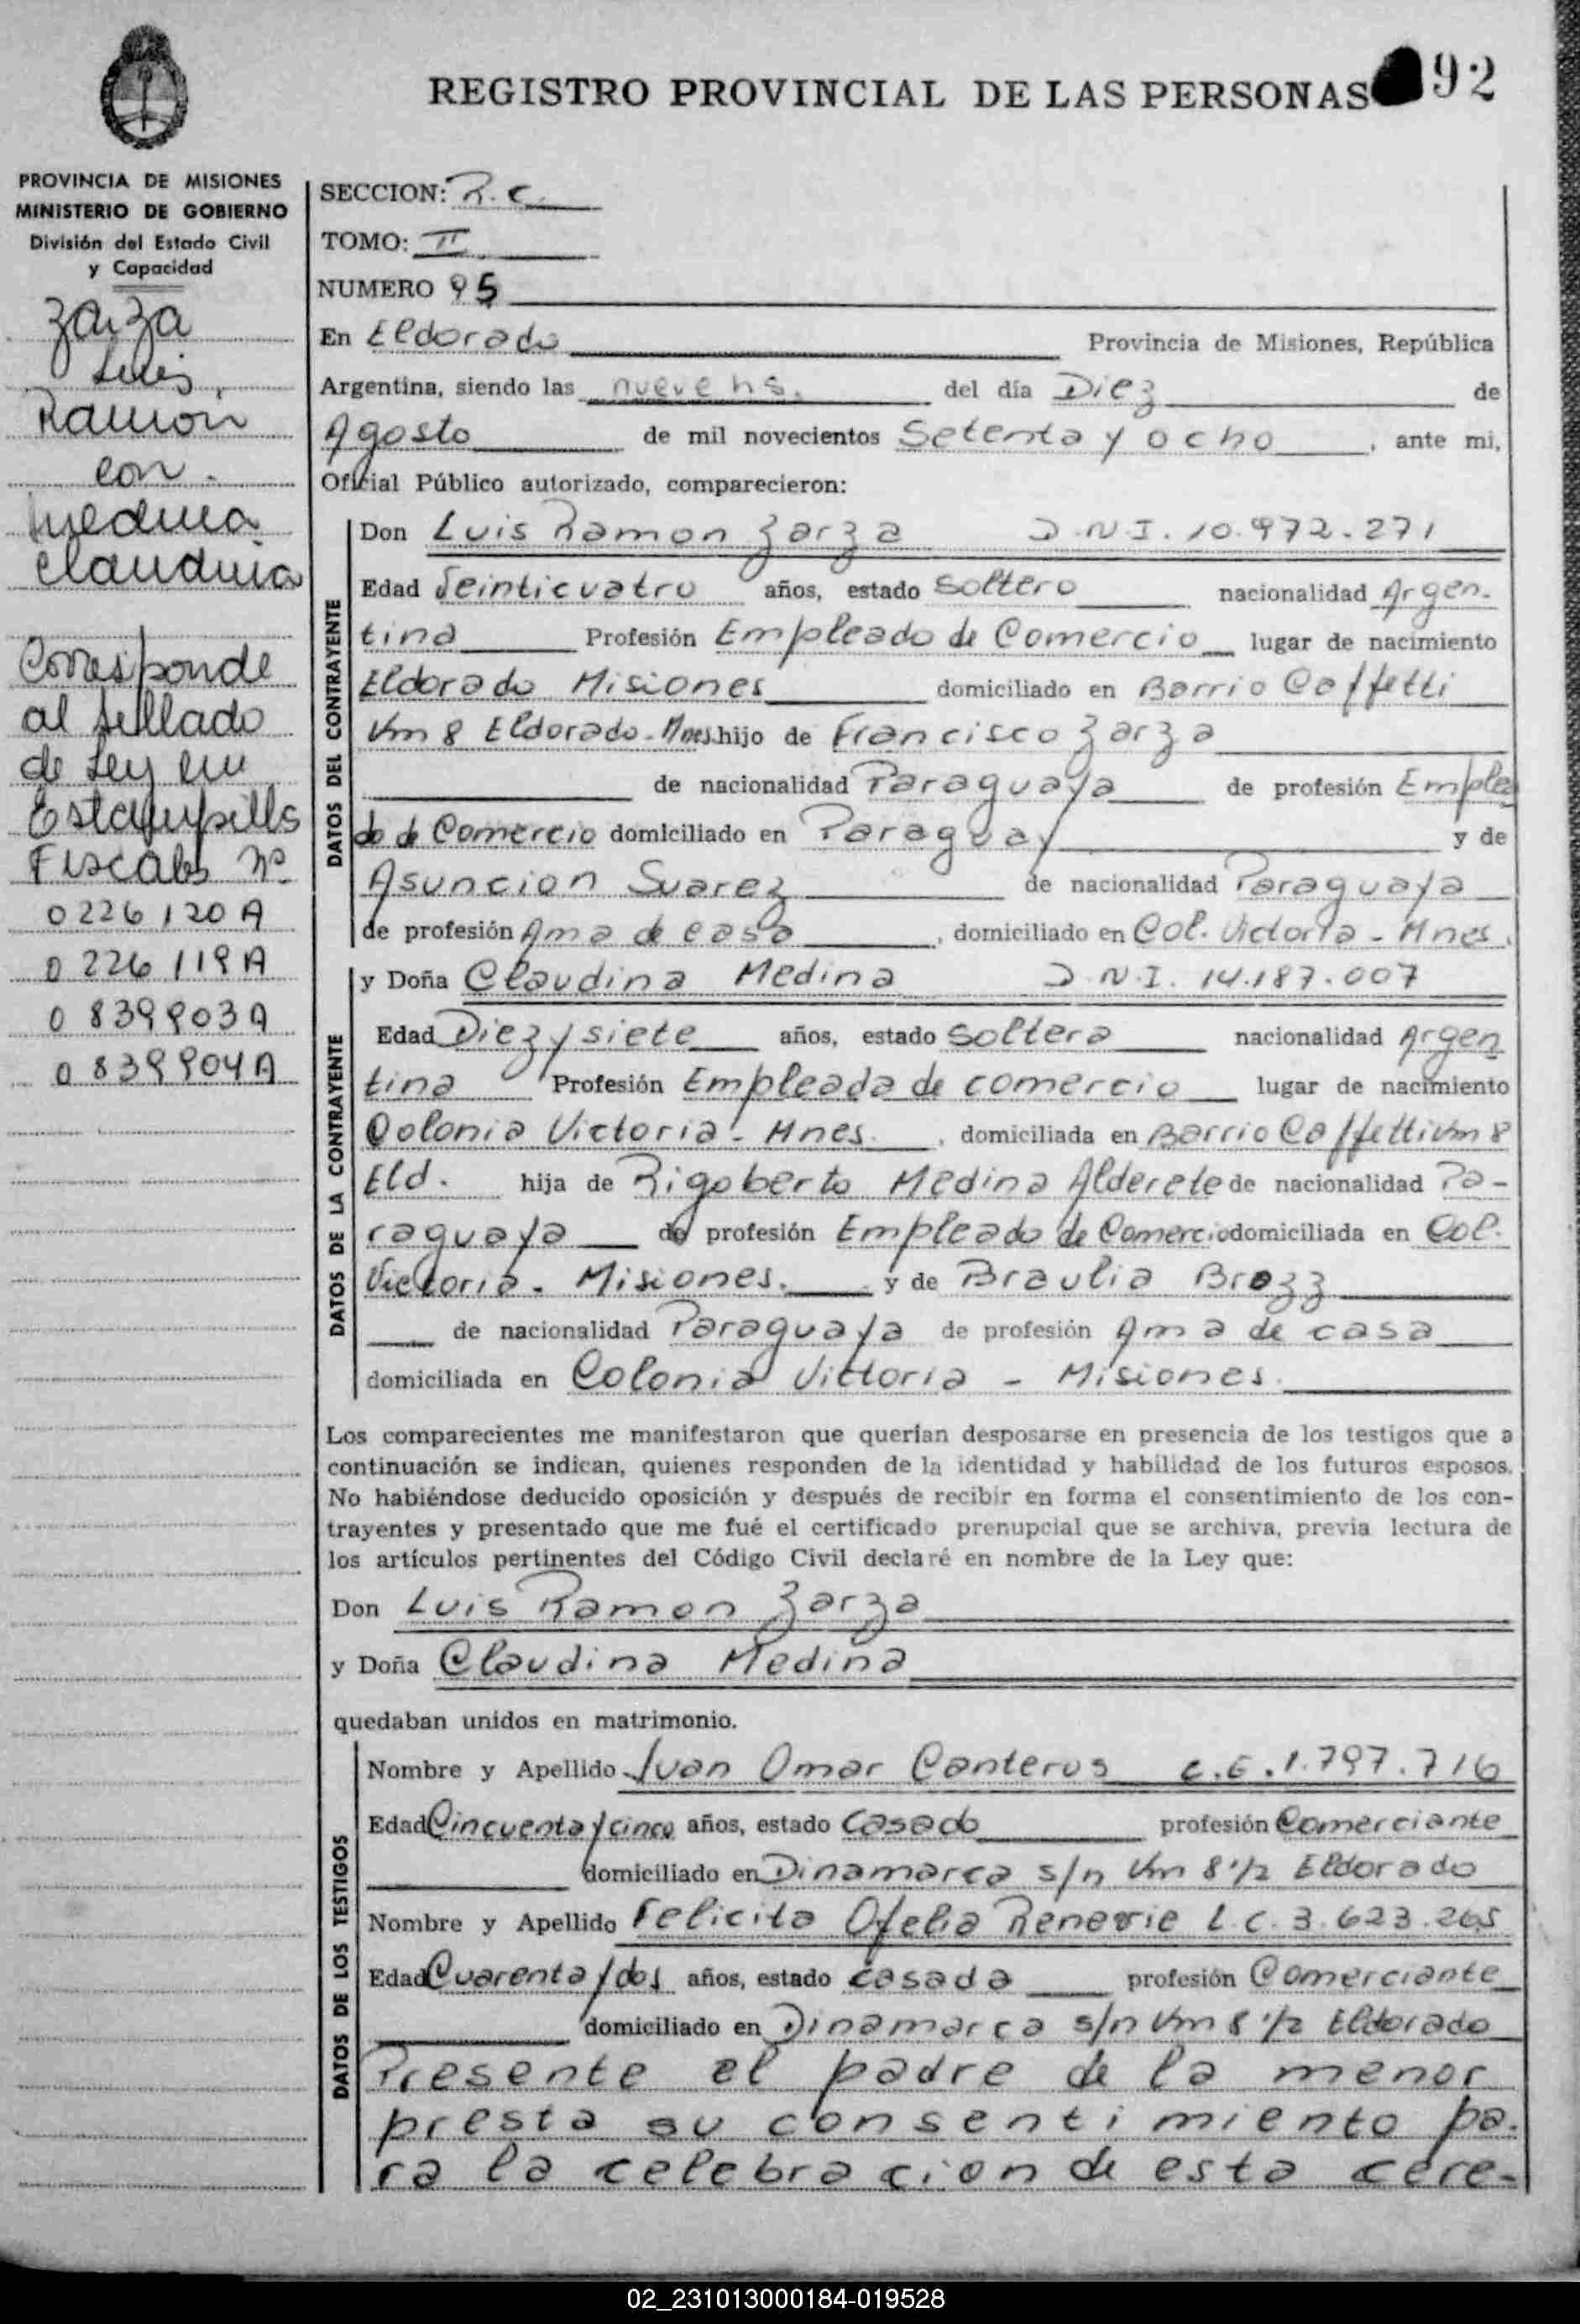 REGISTRO PROVINCIAL DE LAS PERSONAS 92
PROVINCIA DE MISIONES
MINISTERIO DE GOBIERNO
División del Estado Civil
y Capacidad
Zarza
Luis
Ramón
con
Medina
Claudina
Corresponde
al sellado
de Ley en
Estampillas
Fiscales Nº
0226120A
0226119A
0839903A
0839904A
SECCION: R.C.
TOMO: II
NUMERO 95
En Eldorado Provincia de Misiones, República
Argentina, siendo las nueve hs. del día Diez de
Agosto de mil novecientos Setenta y ocho, ante mi,
Oficial Público autorizado, comparecieron:
DATOS DEL CONTRAYENTE
Don Luis Ramon Zarza D.N.I. 10.972.271
Edad Veinticuatro años, estado Soltero nacionalidad Argen-
tina Profesión Empleado de Comercio lugar de nacimiento
Eldorado Misiones domiciliado en Barrio Coffetti
Km 8 Eldorado-Mnes. hijo de Francisco Zarza
de nacionalidad Paraguaya de profesión Emplea
do de Comercio domiciliado en Paraguay y de
Asuncion Suarez de nacionalidad Paraguaya
de profesión Ama de casa, domiciliado en Col. Victoria - Mnes.
DATOS DE LA CONTRAYENTE
y Doña Claudina Medina D.N.I. 14.187.007
Edad Diez y siete años, estado Soltera nacionalidad Argen
tina Profesión Empleada de comercio lugar de nacimiento
Colonia Victoria - Mnes., domiciliada en Barrio Coffetti Km 8
Eld. hija de Rigoberto Medina Alderete de nacionalidad Pa-
raguaya de profesión Empleado de Comercio domiciliada en Col.
Victoria - Misiones. y de Braulia Brozz
de nacionalidad Paraguaya de profesión Ama de casa
domiciliada en Colonia Victoria - Misiones.
Los comparecientes me manifestaron que querían desposarse en presencia de los testigos que a
continuación se indican, quienes responden de la identidad y habilidad de los futuros esposos.
No habiéndose deducido oposición y después de recibir en forma el consentimiento de los con-
trayentes y presentado que me fué el certificado prenupcial que se archiva, previa lectura de
los artículos pertinentes del Código Civil declaré en nombre de la Ley que:
Don Luis Ramon Zarza
y Doña Claudina Medina
quedaban unidos en matrimonio.
DATOS DE LOS TESTIGOS
Nombre y Apellido Juan Omar Canteros 1.797.716
Edad Cincuenta y cinco años, estado Casado profesión Comerciante
domiciliado en Dinamarca s/n Km 8 1/2 Eldorado
Nombre y Apellido Felicita Ofelia L.C. 3.623.265
Edad Cuarenta y dos años, estado casada profesión Comerciante
domiciliado en Dinamarca s/n Km 8 1/2 Eldorado
Presente el padre de la menor
presta su consentimiento pa.
ra la celebracion de esta cere-
02_231013000184-019528